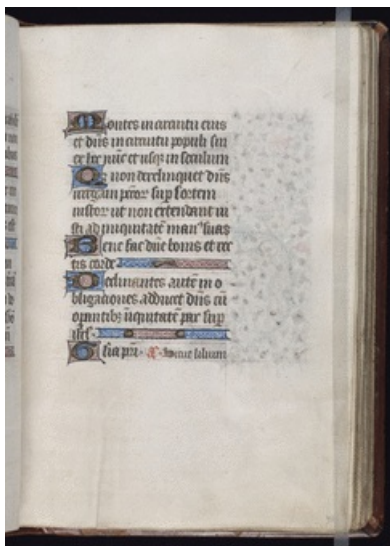 Montes in circuitu eius
et dns in circuitu populi sui
ex hoc nuc et usqz in seculum
Qr non derelinquet dns
uirgam pctor sup sortem
iustor ut non extendant iu
sti ad iniquitate man9 suas
Bene fac dne bonis et rec
tis corde
Declinantes aute in o
bligaciones adducet dns cu
opantibz iiquitate pax sup
isrl
Glia pri